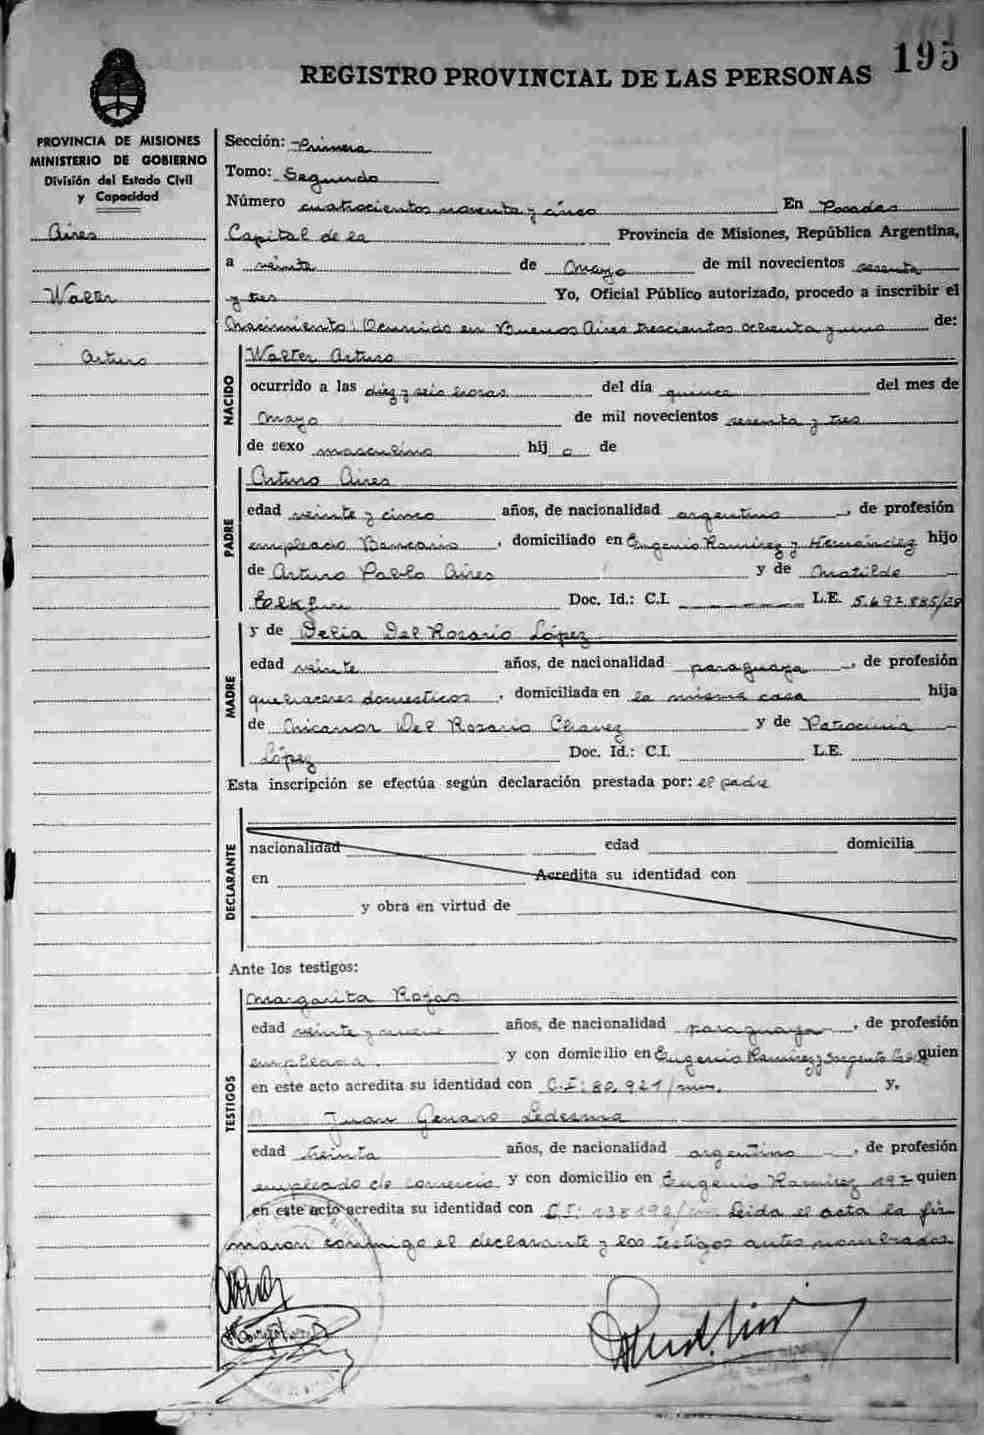 195
REGISTRO PROVINCIAL DE LAS PERSONAS
PROVINCIA DE MISIONES
MINISTERIO DE GOBIERNO
División del Estado Civil
y Capacidad
Aires
Walter
Arturo
Sección: Primera
Tomo: Segundo
Número cuatrocientos noventa y cinco En Posadas
Capital de la Provincia de Misiones, República Argentina,
a veinte de Mayo de mil novecientos sesenta
y tres Yo, Oficial Público autorizado, procedo a inscribir el
Nacimiento: Ocurrido en Buenos Aires trescientos ochenta y uno de:
NACIDO
Walter Arturo
ocurrido a las diez y seis horas del día quince del mes de
Mayo de mil novecientos sesenta y tres
de sexo masculino hij o de
PADRE
Arturo Aires
edad veinte y cinco años, de nacionalidad argentino, de profesión
empleado Bancario, domiciliado en Eugenio Ramirez y Hernández hijo
de Arturo Pablo Aires y de Matilde
Doc. Id.: C.I. L.E. 5.697.885/28
MADRE
y de Delia Del Rosario López
edad veinte años, de nacionalidad paraguaya, de profesión
quehaceres domesticos, domiciliada en la misma casa hija
de Nicanor Del Rosario Chavez y de Patrocinia
López Doc. Id.: C.I. L.E.
Esta inscripción se efectúa según declaración prestada por: el padre
DECLARANTE
nacionalidad edad domicilia
en Acredita su identidad con
y obra en virtud de
Ante los testigos:
TESTIGOS
Margarita Rojas
edad veinte y nueve años, de nacionalidad paraguaya, de profesión
empleada. y con domicilio en Eugenio Ramirez y Sargento quien
en este acto acredita su identidad con C.I: 80.921 y,
Juan Genaro Ledesma
edad treinta años, de nacionalidad argentino, de profesión
empleado de comercio y con domicilio en Eugenio Ramirez 197 quien
en este acto acredita su identidad con C.I: 138192 Leida el acta la fir
maron conmigo el declarante y los testigos antes nombrados